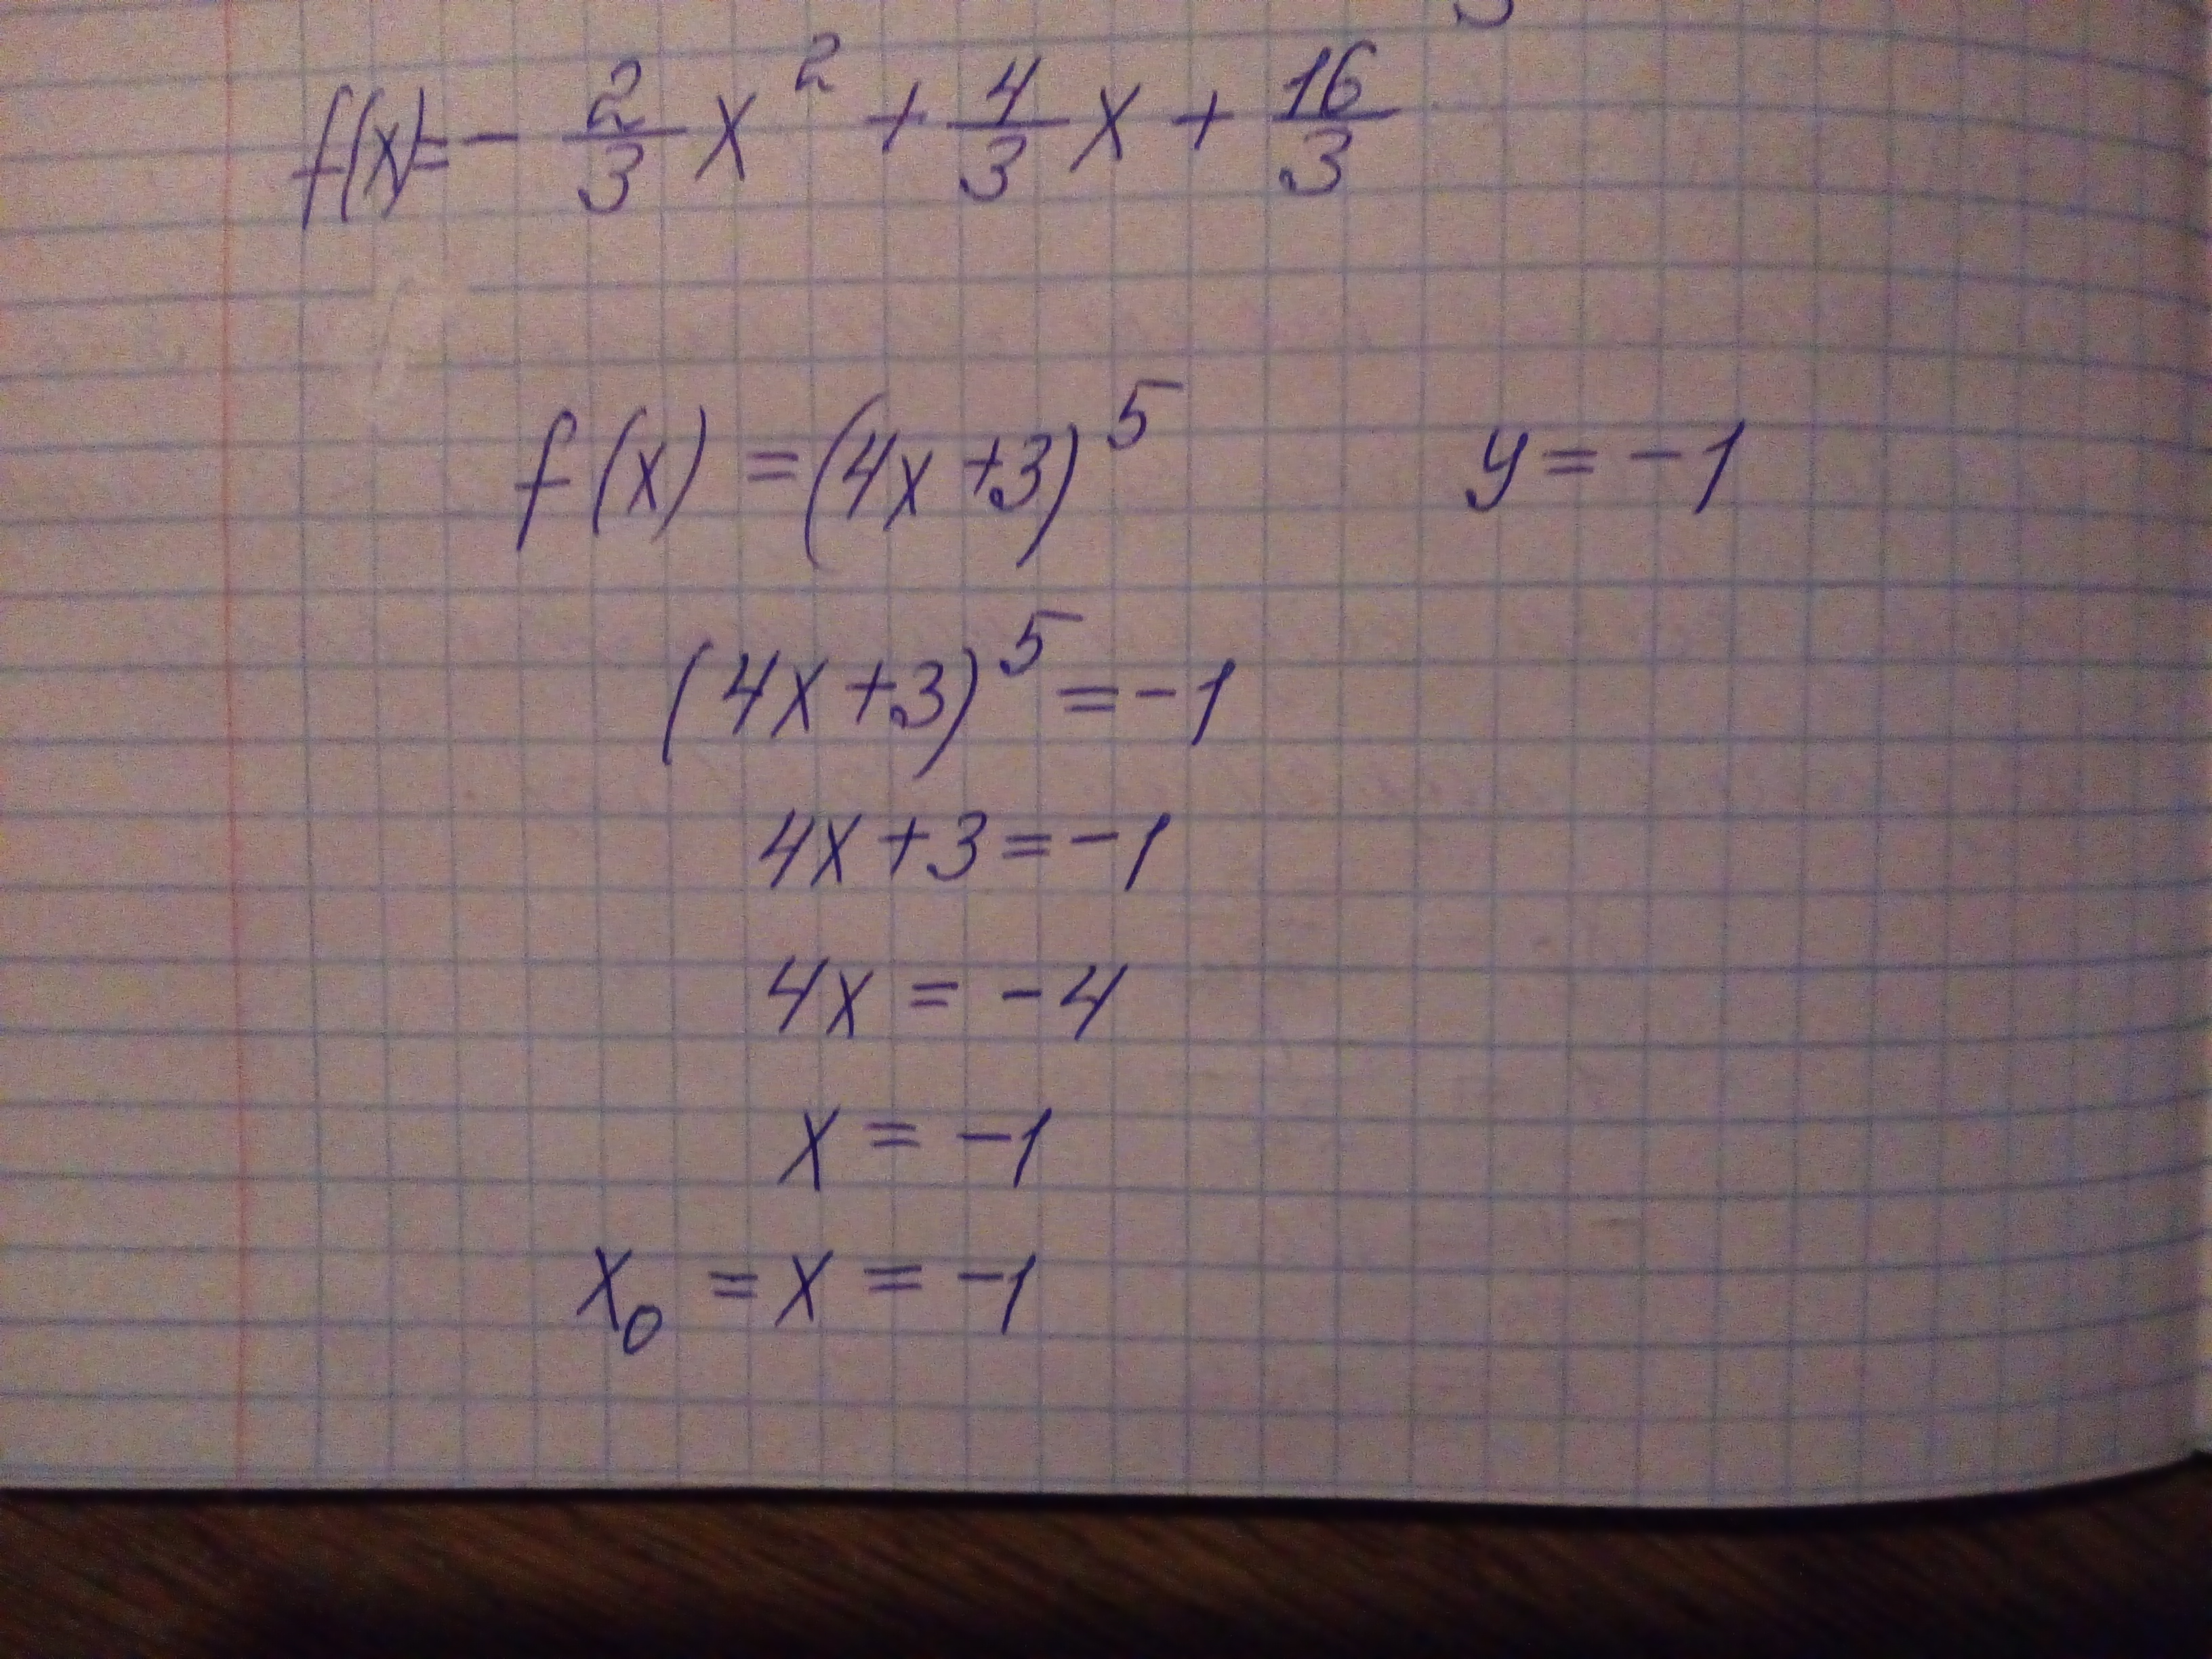 f(x)=-2/3 x² + 4/3 x + 16/3
f(x) = (4x+3)⁵ y = -1
(4x+3)⁵ = -1
4x+3 = -1
4x = -4
x = -1
x₀ = x = -1